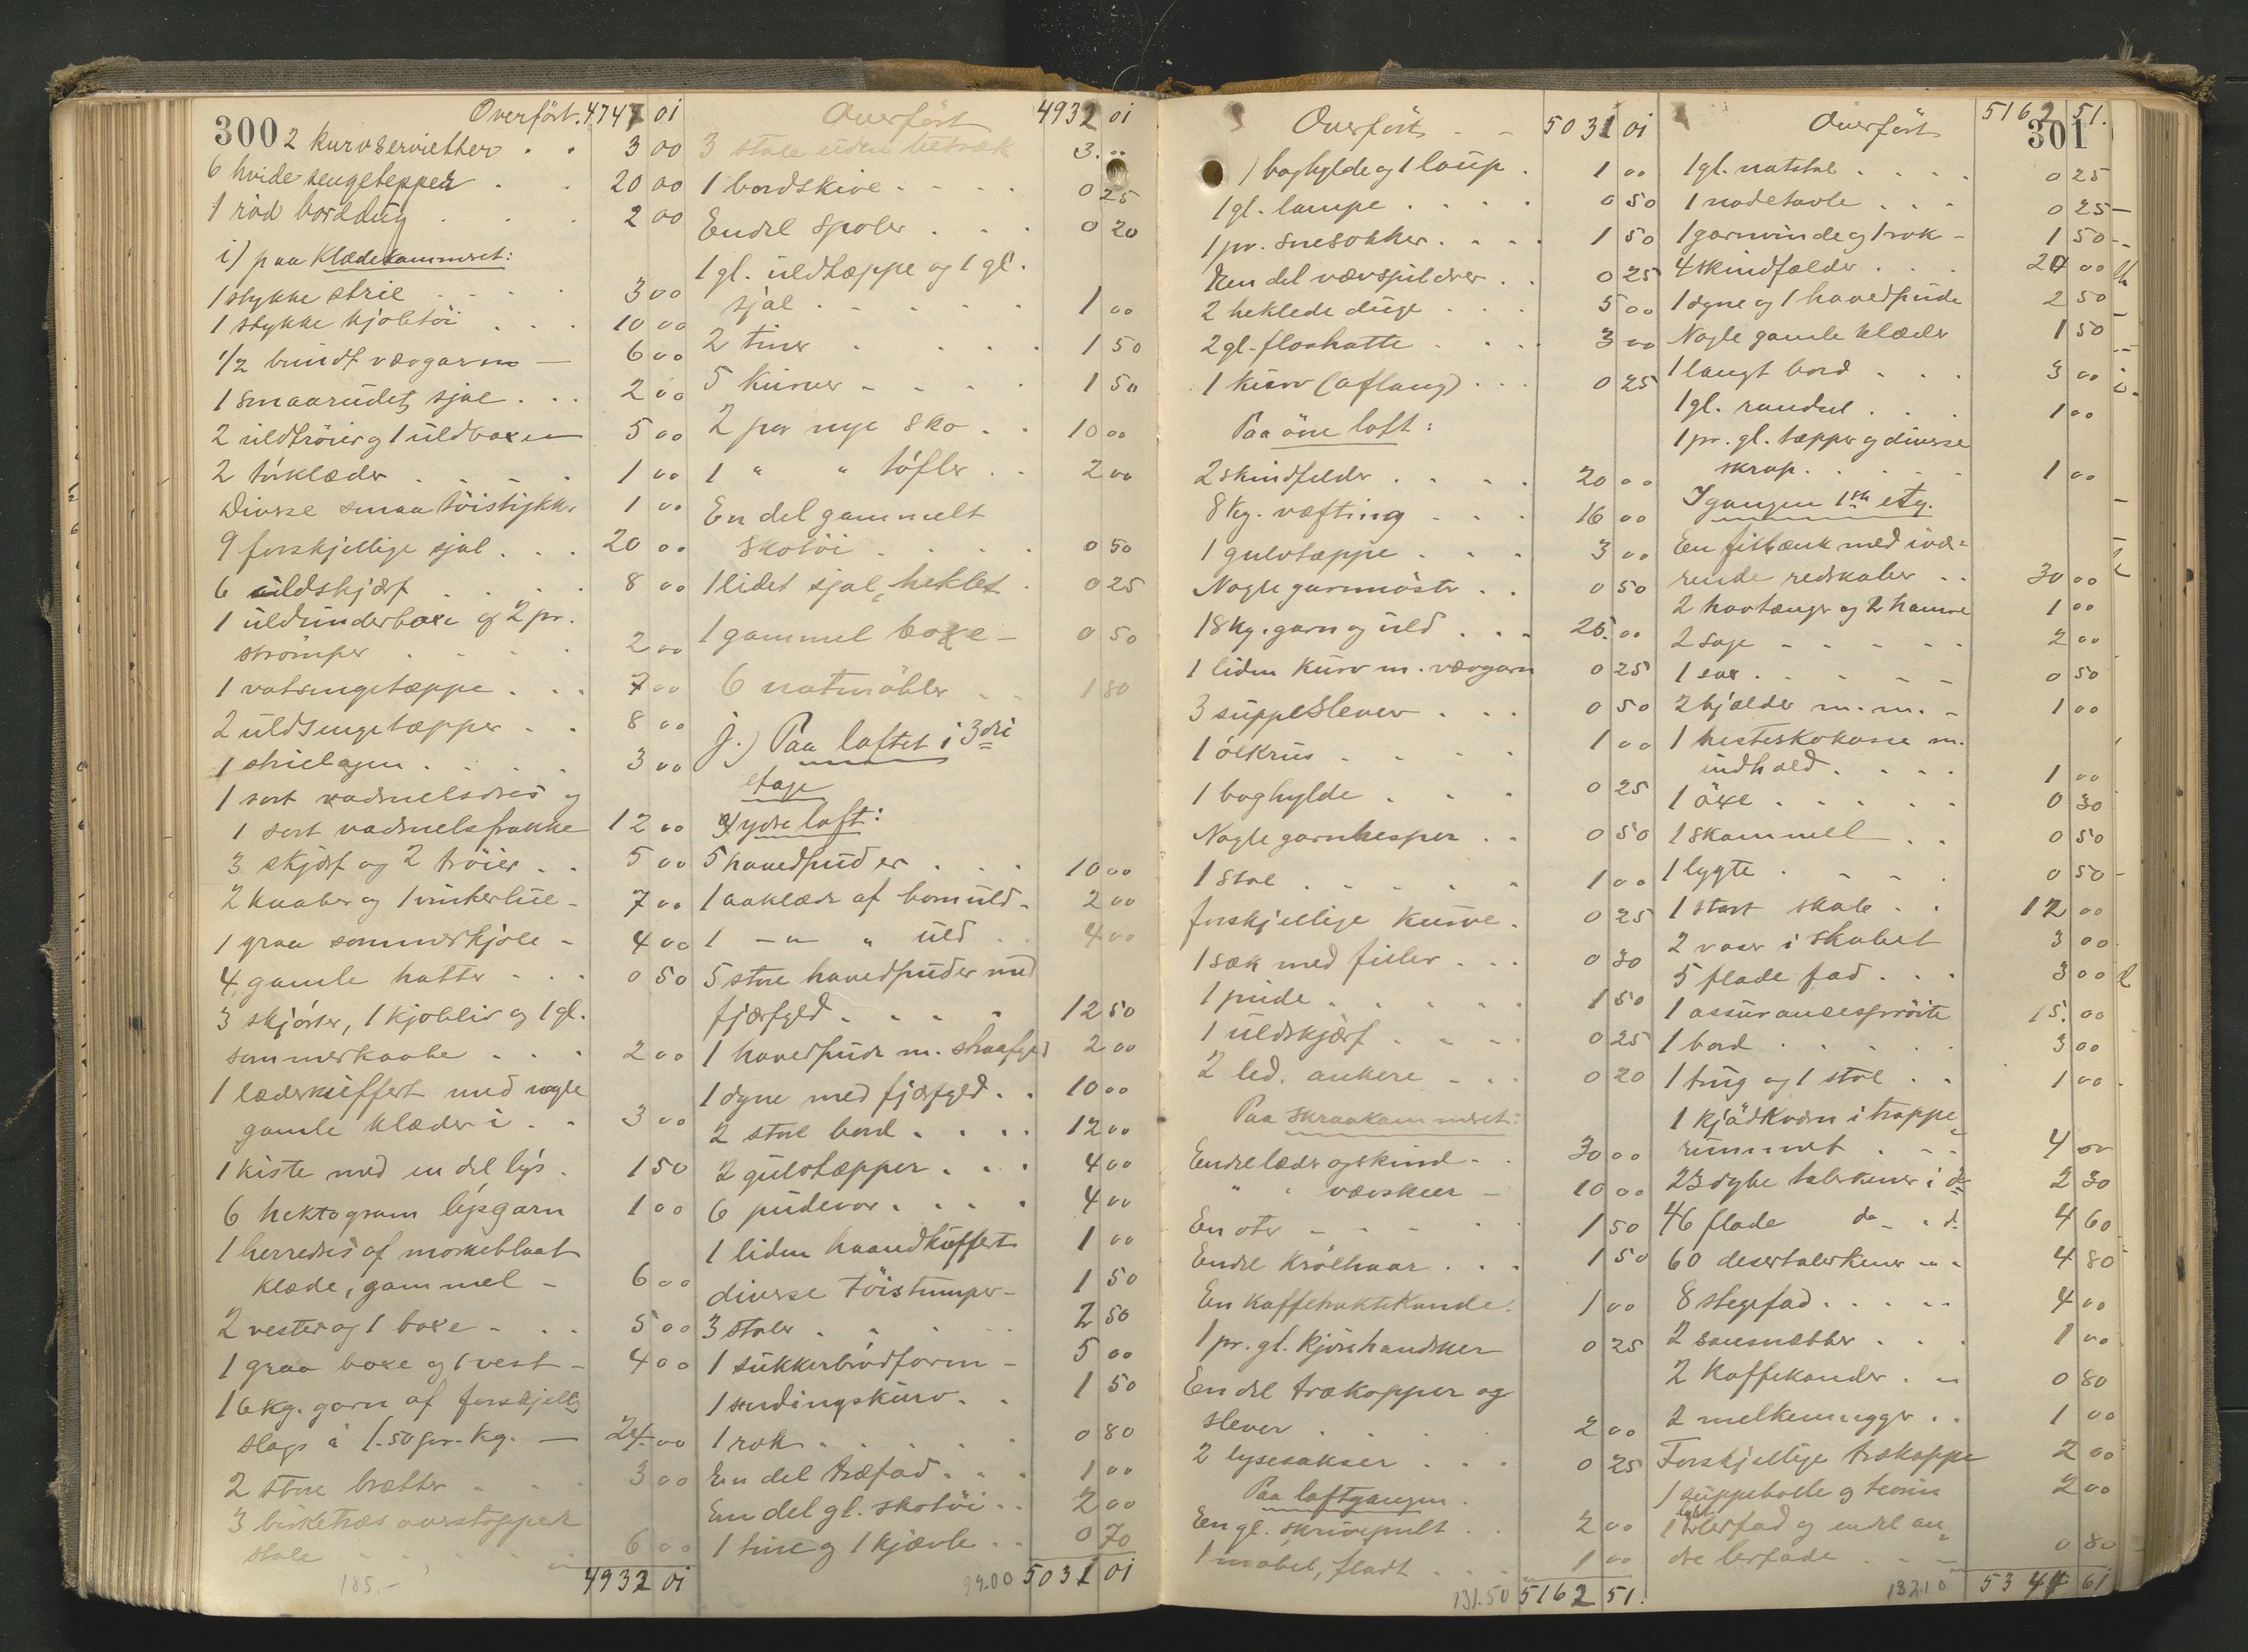 300
Overført. 4747 01
2 kurvservietter . . 3 00
6 hvide sengetepper . . 20 00
1 rød borddug . . . 2 00
i) paa Klædekammeret:
1 stykke strie . . . . 3 00
1 stykke kjoletöi . . . 10 00
1/2 bundt vævgarn — 6 00
1 smaarudet sjal . . . 2 00
2 uldtröier og 1 uldboxe — 5 00
2 törklæder . . . . 1 00
Diverse smaa töistykker 1 00
9 forskjellige sjal . . . 20 00
6 uldskjærf . . . . 8 00
1 uldunderboxe og 2 pr.
strömper . . . . 2 00
1 vatsengetæppe . . . 7 00
2 uldsengetæpper . . 8 00
1 strielagen . . . . 3 00
1 sort vadmelsdres og
1 sort vadmelsfrakke 12 00
3 skjærf og 2 tröier . . 5 00
2 kaaber og 1 vinterlue - 7 00
1 graa sommerkjole - 4 00
4 gamle hatter - . . 0 50
3 skjörter, 1 kjoleliv og 1 gl.
sommerkaabe . . . 2 00
1 læderkuffert med nogle
gamle klæder i . . 3 00
1 kiste med en del lys . 1 50
6 hektogram lysgarn 1 00
1 herredres af mörkeblaat
klæde, gammel - 6 00
2 vester og 1 boxe - . . 5 00
1 graa boxe og 1 vest - 4 00
16 kg. garn af forskjellig
slags á 1.50 pr. kg. — 24 00
2 store brætter . . . 3 00
3 birketræs overstoppet
stole - - . . . . 6 00
185.- 4932 01
Overført 4932 01
3 stole uden betræk 3. 00
1 bordskive - - . . 0 25
Endel spoler . . . 0 20
1 gl. uldtæppe og 1 gl.
sjal - - - . . 1 00
2 tiner . . . . 1 50
5 kurver - - . . 1 50
2 par nye sko . . 10 00
1 " " töfler . . 2 00
En del gammelt
skotöi . . . . 0 50
1 lidet sjal, heklet . 0 25
1 gammel boxe - 0 50
6 natmöbler . . 1 80
j.) Paa loftet i 3die
etage
ydre loft:
5 hovedpuder . . . 10 00
1 aaklæde af bomuld - 2 00
1 -"- " uld . . 4 00
5 store hovedpuder med
fjærfyld . . . . 12 50
1 hovedpude m. straafyld 2 00
1 dyne med fjærfyld . . 10 00
2 store bord . . . . 12 00
2 gulvtæpper . . . 4 00
6 pudevar . . . . 4 00
1 liden haandkuffert 1 00
diverse töistumper - 1 50
3 stoler . . . . . 2 50
1 sukkerbrödform - 5 00
1 sendingskurv . . 1 50
1 rok . . . . . 0 80
En del træfad . . . 1 00
En del gl. skotöi . . 2 00
1 tine og 1 kjævle . . 0 70
99.00 5031 01
Overført - - 5031 01
1 boghylde og 1 laup . 1 00
1 gl. lampe . . . . 0 50
1 pr. snesokker . . . . 1 50
En del vævspilder . . 0 25
2 heklede duge . . . 5 00
2 gl. floshatte . . . . 3 00
1 kurv (aflang) . . . 0 25
Paa övre loft:
2 skindfelder . . . . 20 00
8 kg. væfting - - . 16 00
1 gulvtæppe . . . 3 00
Nogle garnnöster . . 0 50
18 kg. garn og uld . . . 25. 00
1 liden kurv m. vævgarn 0 25
3 suppeslever . . . 0 50
1 ölkrus . . . . 1 00
1 boghylde . . . 0 25
Nogle garnhesper . . 0 50
1 stol . . . . . 1 00
forskjellige kurve . 0 25
1 sæk med filler . . . 0 30
1 pude . . . . . 1 50
1 uldskjærf . . . . 0 25
2 led. ankere - . . 0 20
Paa skraakammeret:
Endel læder og skind - . 30 00
" " vævskeer - 10 00
En oter - - . . . 1 50
Endel krölhaar . . . 1 50
En kaffetraktekande . 1 00
1 pr. gl. kjörehandsker 0 25
En del trækopper og
slever . . . . . 2 00
2 lysesakser . . . 0 25
Paa loftgangen .
En gl. skrivepult . . 2 00
1 möbel, fladt . . . 1 00
131.50 5162 51.
301
Overført 5162 51.
1 gl. natstol . . . . 0 25
1 nodetavle . . . 0 25 —
1 garnvinde og 1 rok - 1 50
4 skindfælder . . . 20 00
1 dyne og 1 hovedpude 2 50
Nogle gamle klæder 1 50
1 langt bord . . . 3 00
1 gl. rundsel . . . 1 00
1 pr. gl. tæpper og diverse
skrap . . . . . 1 00
I gangen 1ste etg.
En filbænk med ivæ-
rende redskaber . . 30 00
2 hovtænger og 2 hamre 1 00
2 sage - - - - - 2 00
1 sax . . . - - 0 50
2 bjælder m. m. - 1 00
1 hesteskokasse m.
indhold . . . . 1 00
1 öxe . . . . . 0 30
1 skammel . . 0 50
1 lygte . - - . 0 50
1 stort skab . . 12 00
2 vaser i skabet 3 00
5 flade fad . . . 3 00
1 assurancespröite 15. 00
1 bord . . . . . 3 00
1 trug og 1 stol . . 1 00
1 kjödkværn i trappe-
rummet . - - 4 00
23 dybe talerkener i do 2 30
46 flade do - " d. 4 60
60 desertalerkener - - 4 80
8 stegefad . . . . . 4 00
2 sausnætter . . . 1 00
2 kaffekander . - 0 80
2 melkemugger . . 1 00
Forskjellige trækoppe 2 00
1 suppebolle og terrin 2 00
1 lerfad og endel an-
dre lerfade . - - 0 80
132.10 61